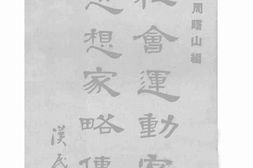 周曙山編
社會運動家
思想家略傳
漢民